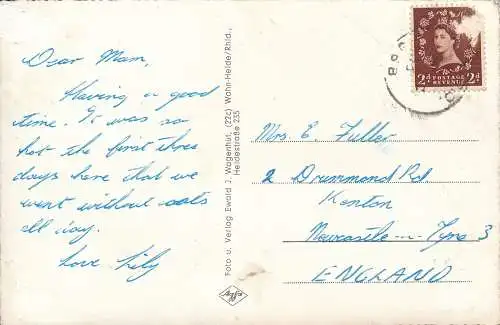 Dear Mam,
Having a good
time. It was so
hot the first three
days here that we
went without coats
all day.
Love Lily
Foto u. Verlag Ewald J. Wagenhut, (22c) Wahn-Heide/Rhld.,
Heidestraße 235
Agfa
2d POSTAGE 2d
REVENUE
Mrs. E. Fuller
2 Drummond Rd
Kenton
Newcastle-n-Tyne 3
ENGLAND